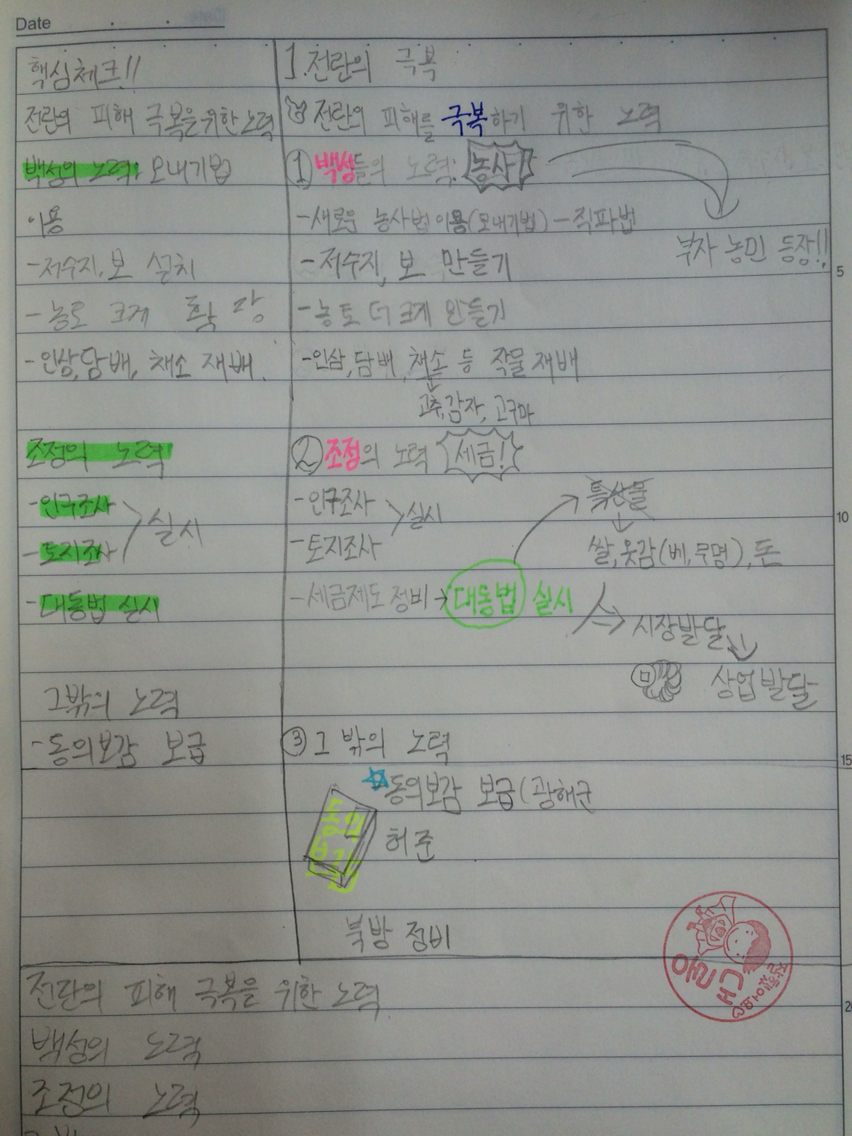 Date
핵심체크!!
전란의 피해 극복을위한노력
백성의 노력: 모내기법
이용
-저수지,보 설치
-농토 크게 확장
-인삼,담배, 채소 재배.
조정의 노력
-인구조사
-토지조사
실시
-대동법 실시
그밖의 노력
-동의보감 보급
1.전란의 극복
전란의 피해를 극복하기 위한 노력
①백성들의 노력: 농사!
-새로운 농사법이용(모내기법)-직파법
부자 농민 등장!!
-저수지, 보 만들기
-농토 더 크게 만들기
-인삼,담배, 채소 등 작물재배
고추,감자, 고구마
②조정의 노력 세금!
-인구조사
-토지조사
실시
특산물
쌀,옷감(베,무명),돈
-세금제도 정비→대동법 실시
시장발달
상업발달
③그 밖의 노력
동의보감 보급(광해군
허준
동의
보감
북방 정비
5
10
15
전란의 피해 극복을 위한 노력
백성의 노력
조정의 노력